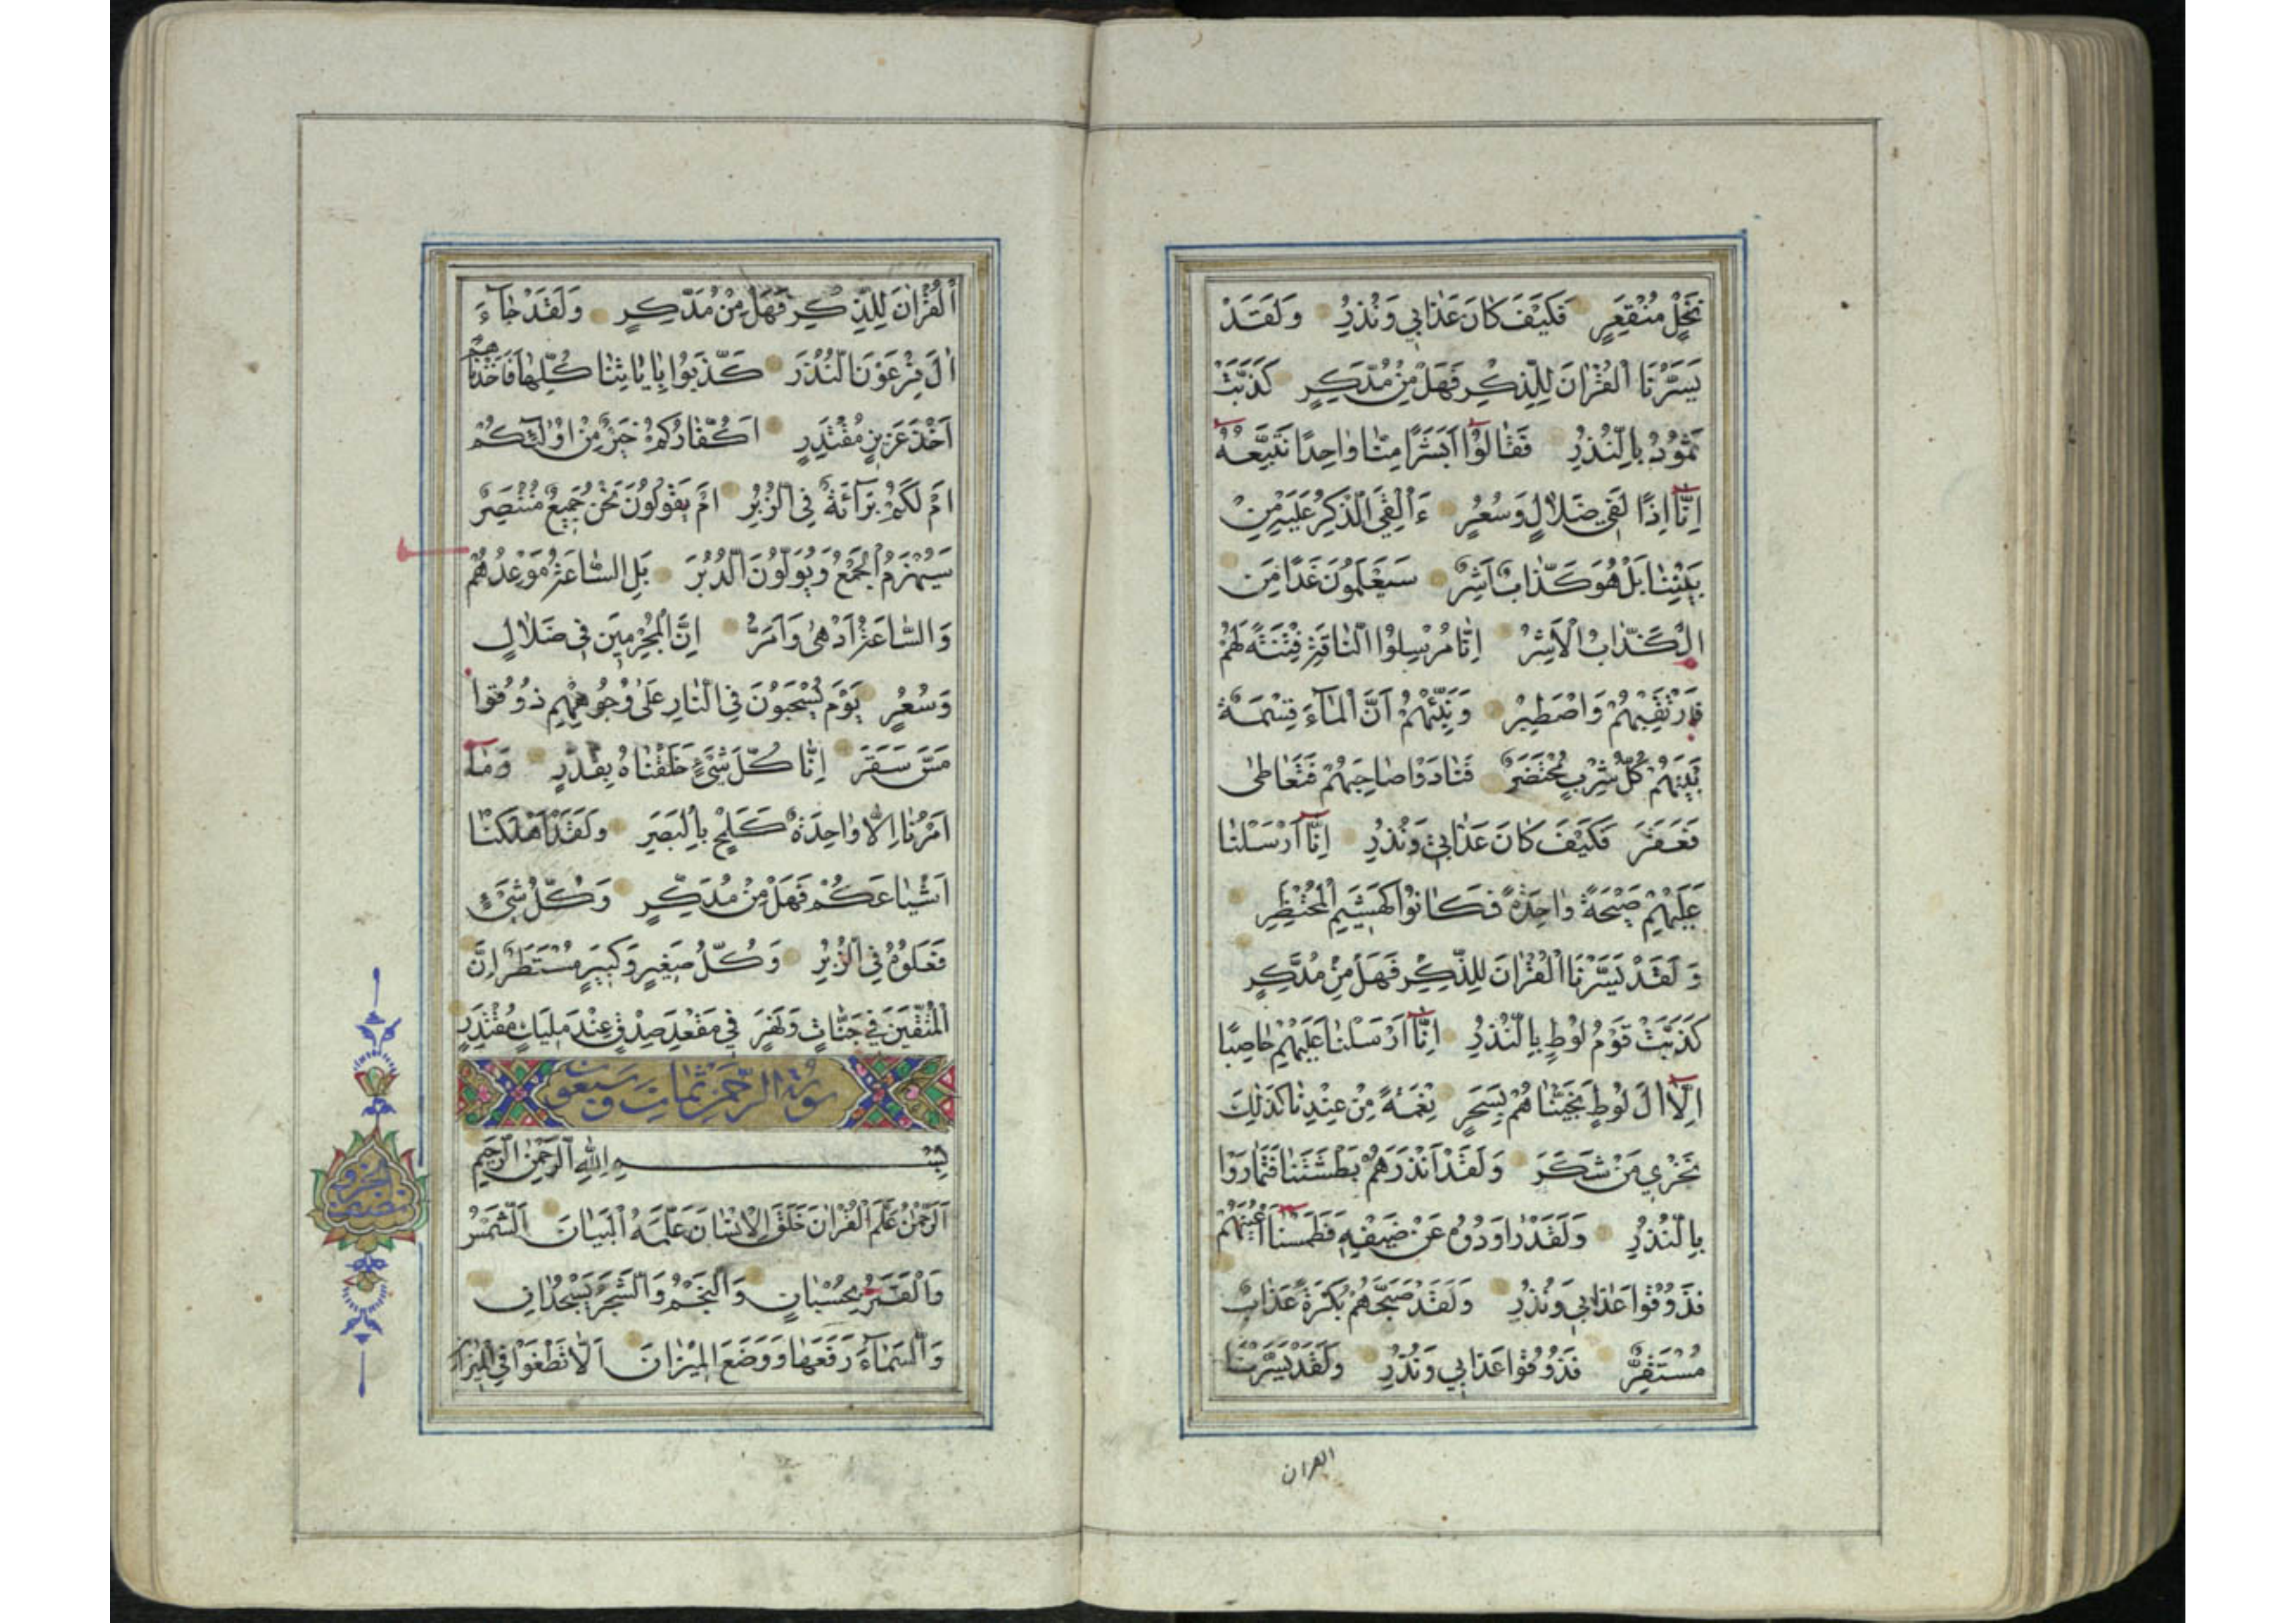 نَخْلٍ مُنْقَعِرٍ فَكَيْفَ كَانَ عَذَابِي وَنُذُرِ وَلَقَدْ
يَسَّرْنَا الْقُرْاٰنَ لِلذِّكْرِ فَهَلْ مِنْ مُدَّكِرٍ كَذَّبَتْ
ثَمُودُ بِالنُّذُرِ فَقَالُوا اَبَشَرًا مِنَّا وَاحِدًا نَتَّبِعُهُ
اِنَّا اِذًا لَفِي ضَلَالٍ وَسُعُرٍ ءَاُلْقِيَ الذِّكْرُ عَلَيْهِ مِنْ
بَيْنِنَا بَلْ هُوَ كَذَّابٌ اَشِرٌ سَيَعْلَمُونَ غَدًا مَنِ
الْكَذَّابُ الْاَشِرُ اِنَّا مُرْسِلُوا النَّاقَةِ فِتْنَةً لَهُمْ
فَارْتَقِبْهُمْ وَاصْطَبِرْ وَنَبِّئْهُمْ اَنَّ الْمَاءَ قِسْمَةٌ
بَيْنَهُمْ كُلُّ شِرْبٍ مُحْتَضَرٌ فَنَادَوْا صَاحِبَهُمْ فَتَعَاطٰى
فَعَقَرَ فَكَيْفَ كَانَ عَذَابِي وَنُذُرِ اِنَّا اَرْسَلْنَا
عَلَيْهِمْ صَيْحَةً وَاحِدَةً فَكَانُوا كَهَشِيمِ الْمُحْتَظِرِ
وَلَقَدْ يَسَّرْنَا الْقُرْاٰنَ لِلذِّكْرِ فَهَلْ مِنْ مُدَّكِرٍ
كَذَّبَتْ قَوْمُ لُوطٍ بِالنُّذُرِ اِنَّا اَرْسَلْنَا عَلَيْهِمْ حَاصِبًا
اِلَّا اٰلَ لُوطٍ نَجَّيْنَاهُمْ بِسَحَرٍ نِعْمَةً مِنْ عِنْدِنَا كَذٰلِكَ
نَجْزِي مَنْ شَكَرَ وَلَقَدْ اَنْذَرَهُمْ بَطْشَتَنَا فَتَمَارَوْا
بِالنُّذُرِ وَلَقَدْ رَاوَدُوهُ عَنْ ضَيْفِهِ فَطَمَسْنَا اَعْيُنَهُمْ
فَذُوقُوا عَذَابِي وَنُذُرِ وَلَقَدْ صَبَّحَهُمْ بُكْرَةً عَذَابٌ
مُسْتَقِرٌّ فَذُوقُوا عَذَابِي وَنُذُرِ وَلَقَدْ يَسَّرْنَا
القران
الْقُرْاٰنَ لِلذِّكْرِ فَهَلْ مِنْ مُدَّكِرٍ وَلَقَدْ جَاءَ
اٰلَ فِرْعَوْنَ النُّذُرُ كَذَّبُوا بِاٰيَاتِنَا كُلِّهَا فَاَخَذْنَاهُمْ
اَخْذَ عَزِيزٍ مُقْتَدِرٍ اَكُفَّارُكُمْ خَيْرٌ مِنْ اُولٰئِكُمْ
اَمْ لَكُمْ بَرَائَةٌ فِي الزُّبُرِ اَمْ يَقُولُونَ نَحْنُ جَمِيعٌ مُنْتَصِرٌ
سَيُهْزَمُ الْجَمْعُ وَيُوَلُّونَ الدُّبُرَ بَلِ السَّاعَةُ مَوْعِدُهُمْ
وَالسَّاعَةُ اَدْهٰى وَاَمَرُّ اِنَّ الْمُجْرِمِينَ فِي ضَلَالٍ
وَسُعُرٍ يَوْمَ يُسْحَبُونَ فِي النَّارِ عَلٰى وُجُوهِهِمْ ذُوقُوا
مَسَّ سَقَرَ اِنَّا كُلَّ شَيْءٍ خَلَقْنَاهُ بِقَدَرٍ وَمَا
اَمْرُنَا اِلَّا وَاحِدَةٌ كَلَمْحٍ بِالْبَصَرِ وَلَقَدْ اَهْلَكْنَا
اَشْيَاعَكُمْ فَهَلْ مِنْ مُدَّكِرٍ وَكُلُّ شَيْءٍ
فَعَلُوهُ فِي الزُّبُرِ وَكُلُّ صَغِيرٍ وَكَبِيرٍ مُسْتَطَرٌ اِنَّ
الْمُتَّقِينَ فِي جَنَّاتٍ وَنَهَرٍ فِي مَقْعَدِ صِدْقٍ عِنْدَ مَلِيكٍ مُقْتَدِرٍ
سورة الرحمن ثمان وسبعون
بِسْمِ اللّٰهِ الرَّحْمٰنِ الرَّحِيمِ
اَلرَّحْمٰنُ عَلَّمَ الْقُرْاٰنَ خَلَقَ الْاِنْسَانَ عَلَّمَهُ الْبَيَانَ اَلشَّمْسُ
وَالْقَمَرُ بِحُسْبَانٍ وَالنَّجْمُ وَالشَّجَرُ يَسْجُدَانِ
وَالسَّمَاءَ رَفَعَهَا وَوَضَعَ الْمِيزَانَ اَلَّا تَطْغَوْا فِي الْمِيزَانِ
نصف الحزب